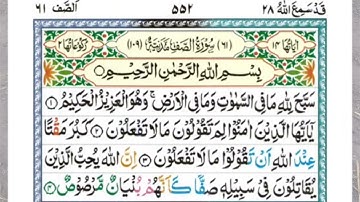 قَدْ سَمِعَ اللّٰهُ ٢٨ ٥٥٢ اَلصَّفّ ٦١
اٰيَاتُهَا ١٤ (٦١) سُوْرَةُ الصَّفِّ مَدَنِيَّةٌ (١٠٩) رُكُوْعَاتُهَا ٢
بِسْمِ اللّٰهِ الرَّحْمٰنِ الرَّحِيْمِ
سَبَّحَ لِلّٰهِ مَا فِى السَّمٰوٰتِ وَمَا فِى الْاَرْضِ ۚ وَهُوَ الْعَزِيْزُ الْحَكِيْمُ ١
يٰٓاَيُّهَا الَّذِيْنَ اٰمَنُوْا لِمَ تَقُوْلُوْنَ مَا لَا تَفْعَلُوْنَ ٢ كَبُرَ مَقْتًا
عِنْدَ اللّٰهِ اَنْ تَقُوْلُوْا مَا لَا تَفْعَلُوْنَ ٣ اِنَّ اللّٰهَ يُحِبُّ الَّذِيْنَ
يُقَاتِلُوْنَ فِىْ سَبِيْلِهٖ صَفًّا كَاَنَّهُمْ بُنْيَانٌ مَّرْصُوْصٌ ٤